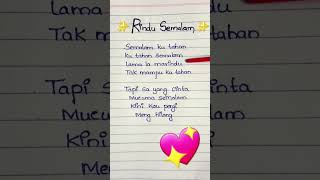 Rindu Semalam
Semalam ku tahan
Ku tahan semalam
Lama la marindu
Tak mampu ku tahan
Tapi sa yang cinta
Mucuma semalam
Kini kau pagi
Meng hilang